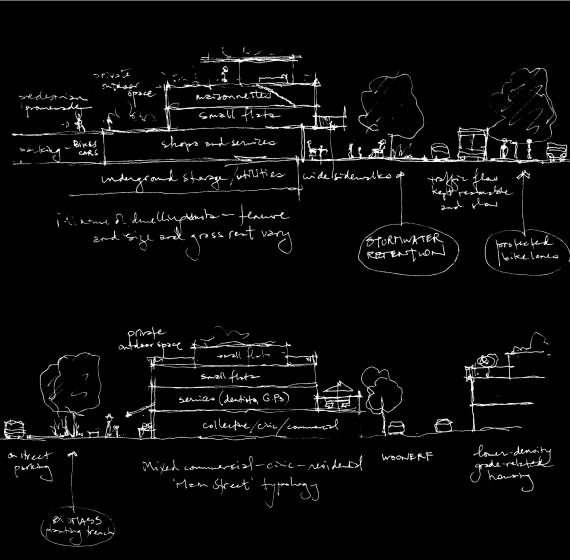 private
outdoor
space
pedestrian
promenade
maisonettes
small flats
parking - BIKES
CARS
shops and services
underground storage/utilities
wide sidewalks
traffic flow
kept reasonable
and slow
mix of dwelling units - tenure
and size and gross rent vary
STORMWATER
RETENTION
protected
bike lanes
private
outdoor space
small flats
small flats
services (dentists, GPs)
collective/civic/commercial
on street
parking
Mixed commercial-civic-residential
'Main Street' typology
WOONERF
lower-density
grade-related
housing
BIOMASS
planting trench